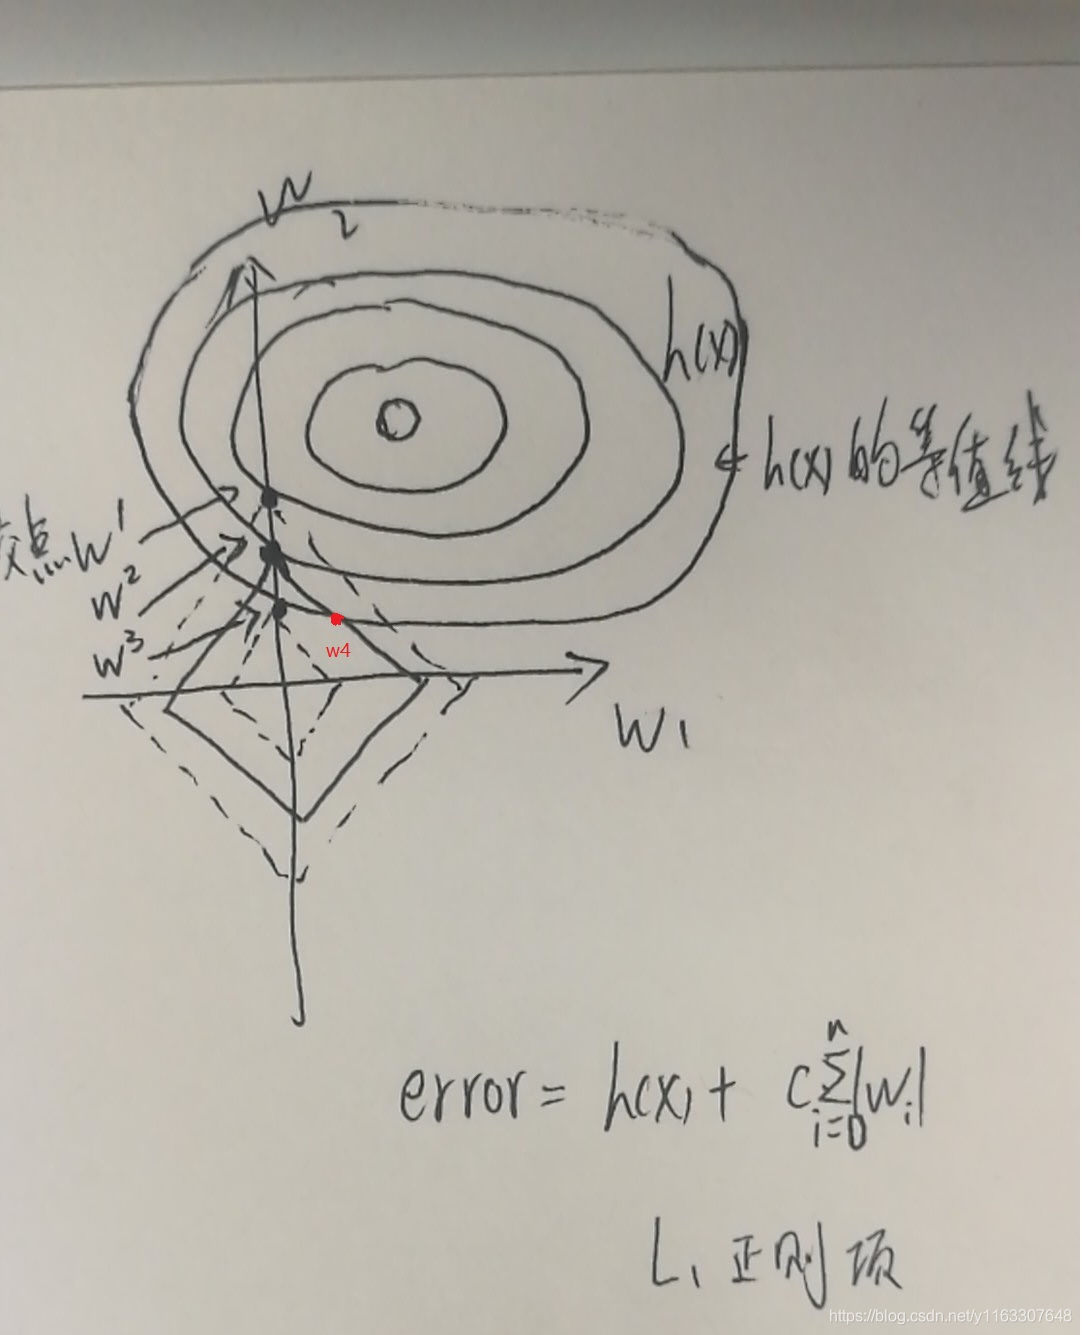 W₂
h(x)
h(x) 的等值线
交点 w¹
w²
w³
w4
W₁
error = h(x) + c∑ⁿᵢ₌₀|wᵢ|
L₁ 正则项
https://blog.csdn.net/y1163307648